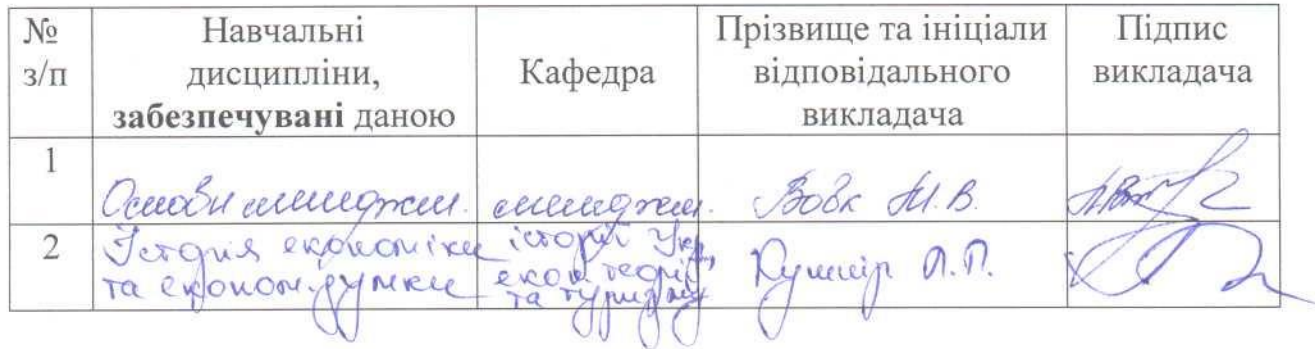 № з/п
Навчальні дисципліни, забезпечувані даною
Кафедра
Прізвище та ініціали відповідального викладача
Підпис викладача
1
Основи менеджм.
менеджм.
Вовк М.В.
2
Історія економіки
та економ. думки
історії Укр,
екон. теорії
та туризму
Кушнір Л.П.